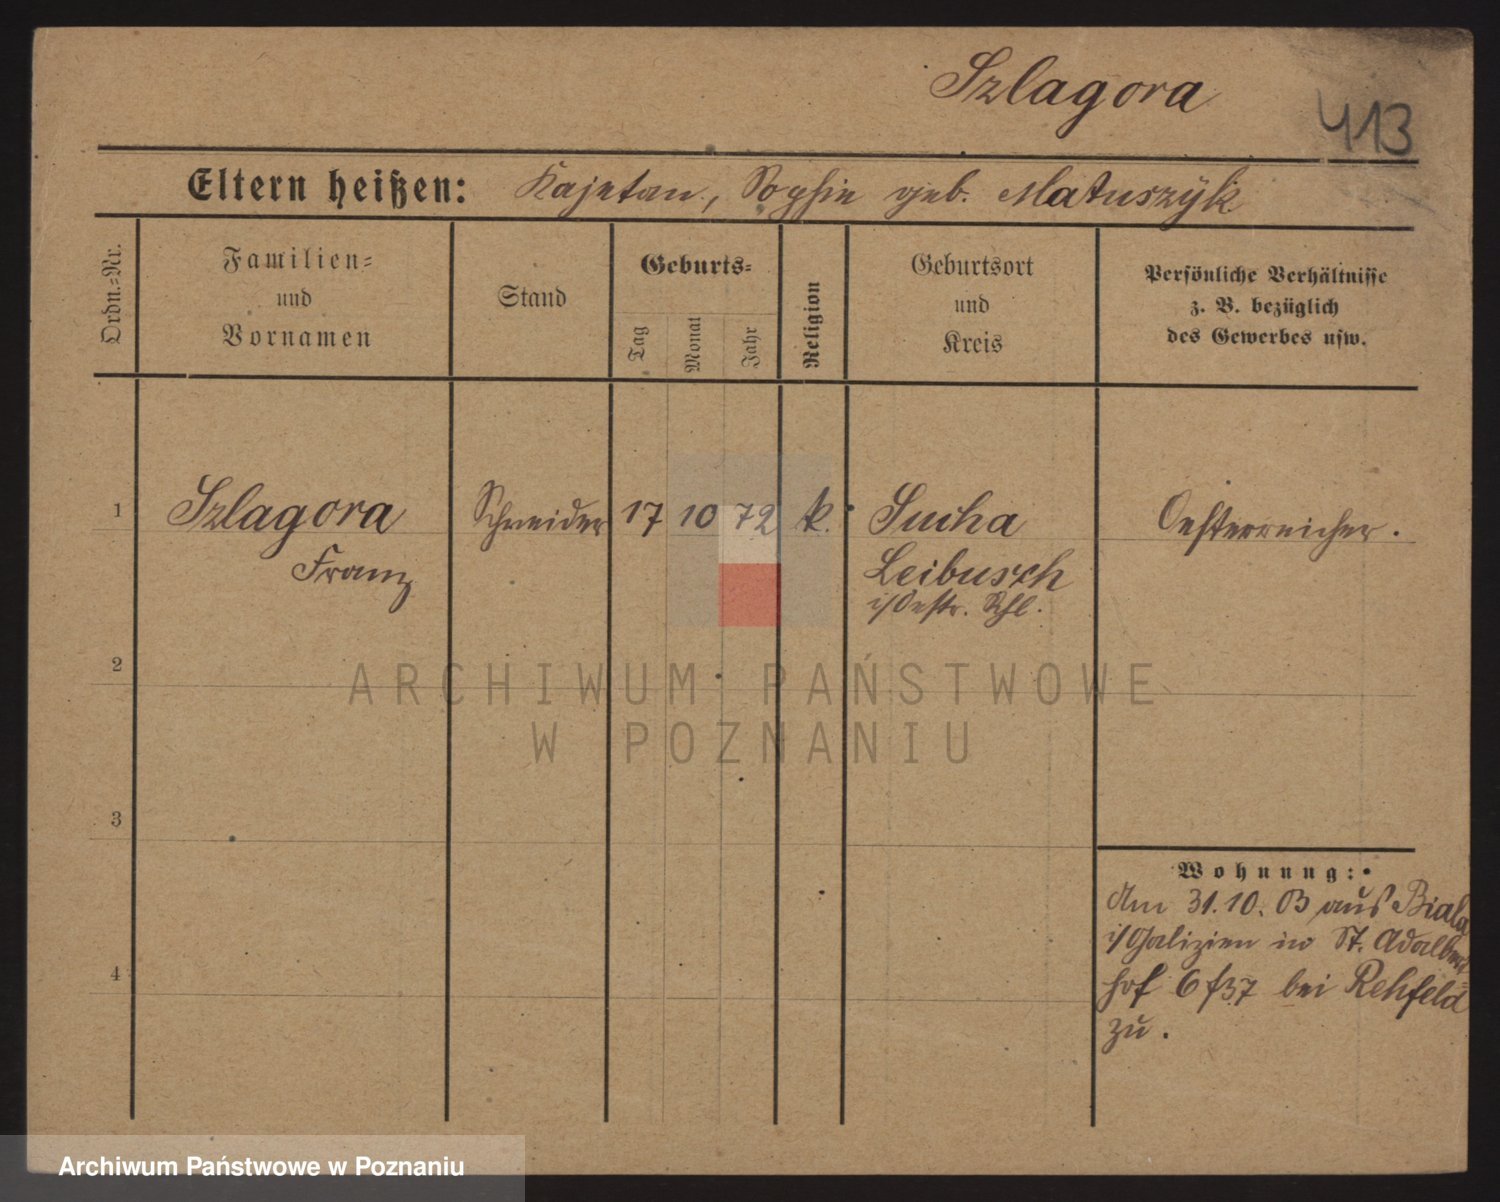 Szlagora
413
Eltern heißen: Kajetan, Sophie geb. Matuszÿk
Ordn.=Nr.
Familien=
und
Vornamen
Stand
Geburts=
Tag
Monat
Jahr
Religion
Geburtsort
und
Kreis
Persönliche Verhältnisse
z. B. bezüglich
des Gewerbes usw.
1 Szlagora Schneider 17 10 72 k. Sucha Oesterreicher.
Franz Leibusch
i/Oestr. Schl.
2
ARCHIWUM PAŃSTWOWE
W POZNANIU
3
Wohnung:
Am 31.10.03 aus Biala
i/Galizien in St. Adalbert
hof 6 f 37 bei Rehfeld
zu.
4
Archiwum Państwowe w Poznaniu